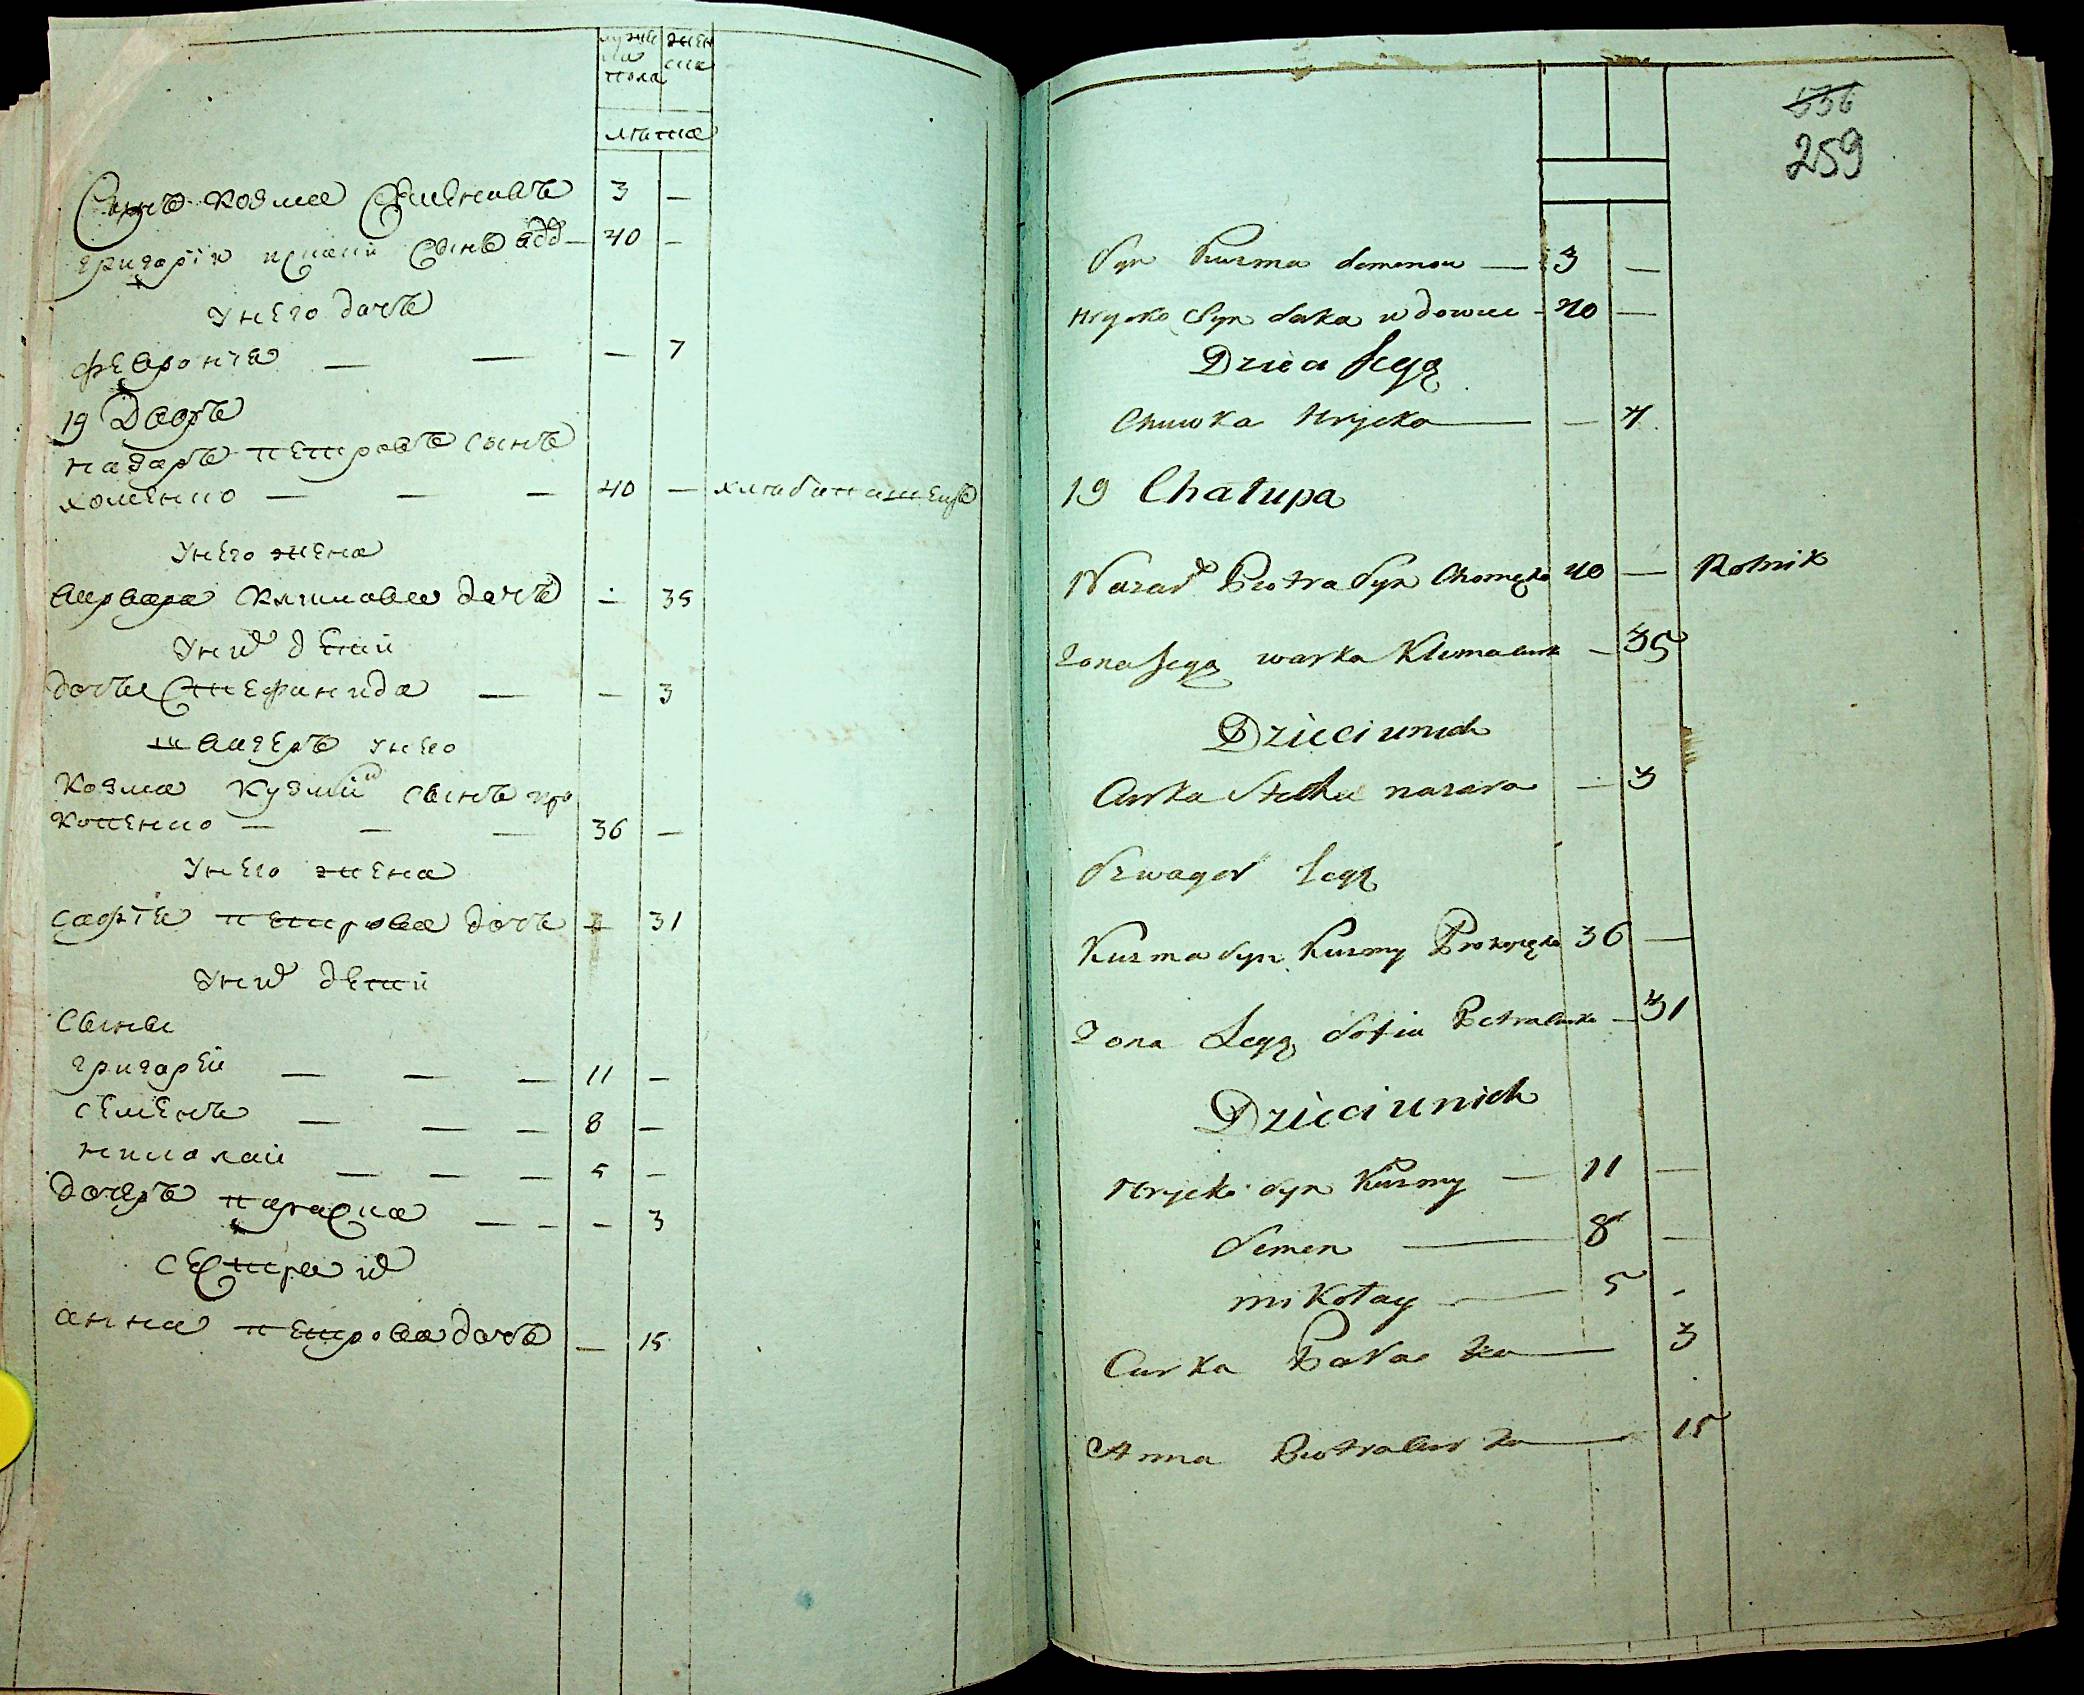 мужеска пола
женска
лѣта
Сынъ Козма Семеновъ 3 —
Григорій Исакій Сынъ вдо— 40 —
У него дочь
Феврониа — — — 7
19 Дворъ
Назаръ Петровъ сынъ
хоменко — — — 40 — хлѣбопашецъ
У него жена
Варвара Климова дочь — 35
У них дети
дочь Стефанида — — 3
Швагеръ у него
Козма Кузмин сынъ про
копенко — — — 36 —
У него жена
Софія Петрова дочь — 31
У них дети
Сыны
Григорей — — — 11 —
Семенъ — — — 8 —
Николай — — — 5 —
дочерь Параска — — — 3
сестра их
анна Петрова дочь — 15
536
259
Syn Kuzma Semenow — 3 —
Hrycko Syn Saka wdowiec - 40 —
Dziea Jegą
Chuwka Hrycka — — 7
19 Chałupa
Nazar Piotra Syn Chomęko 40 — Rolnik
Zona Jegą warka Klima curka — 35
Dzieci unich
Curka Stecha nazara — 3
Szwagor Jegą
Kuzma Syn Kuzmy Prokopęko 36 —
Zona Jegą Sofia Petra Curka — 31
Dzieci unich
Hrycko Syn Kuzmy — 11 —
Semen — 8 —
mikołay — 5 -
Curka Paraska — 3
Anna Piotra Curka — 15